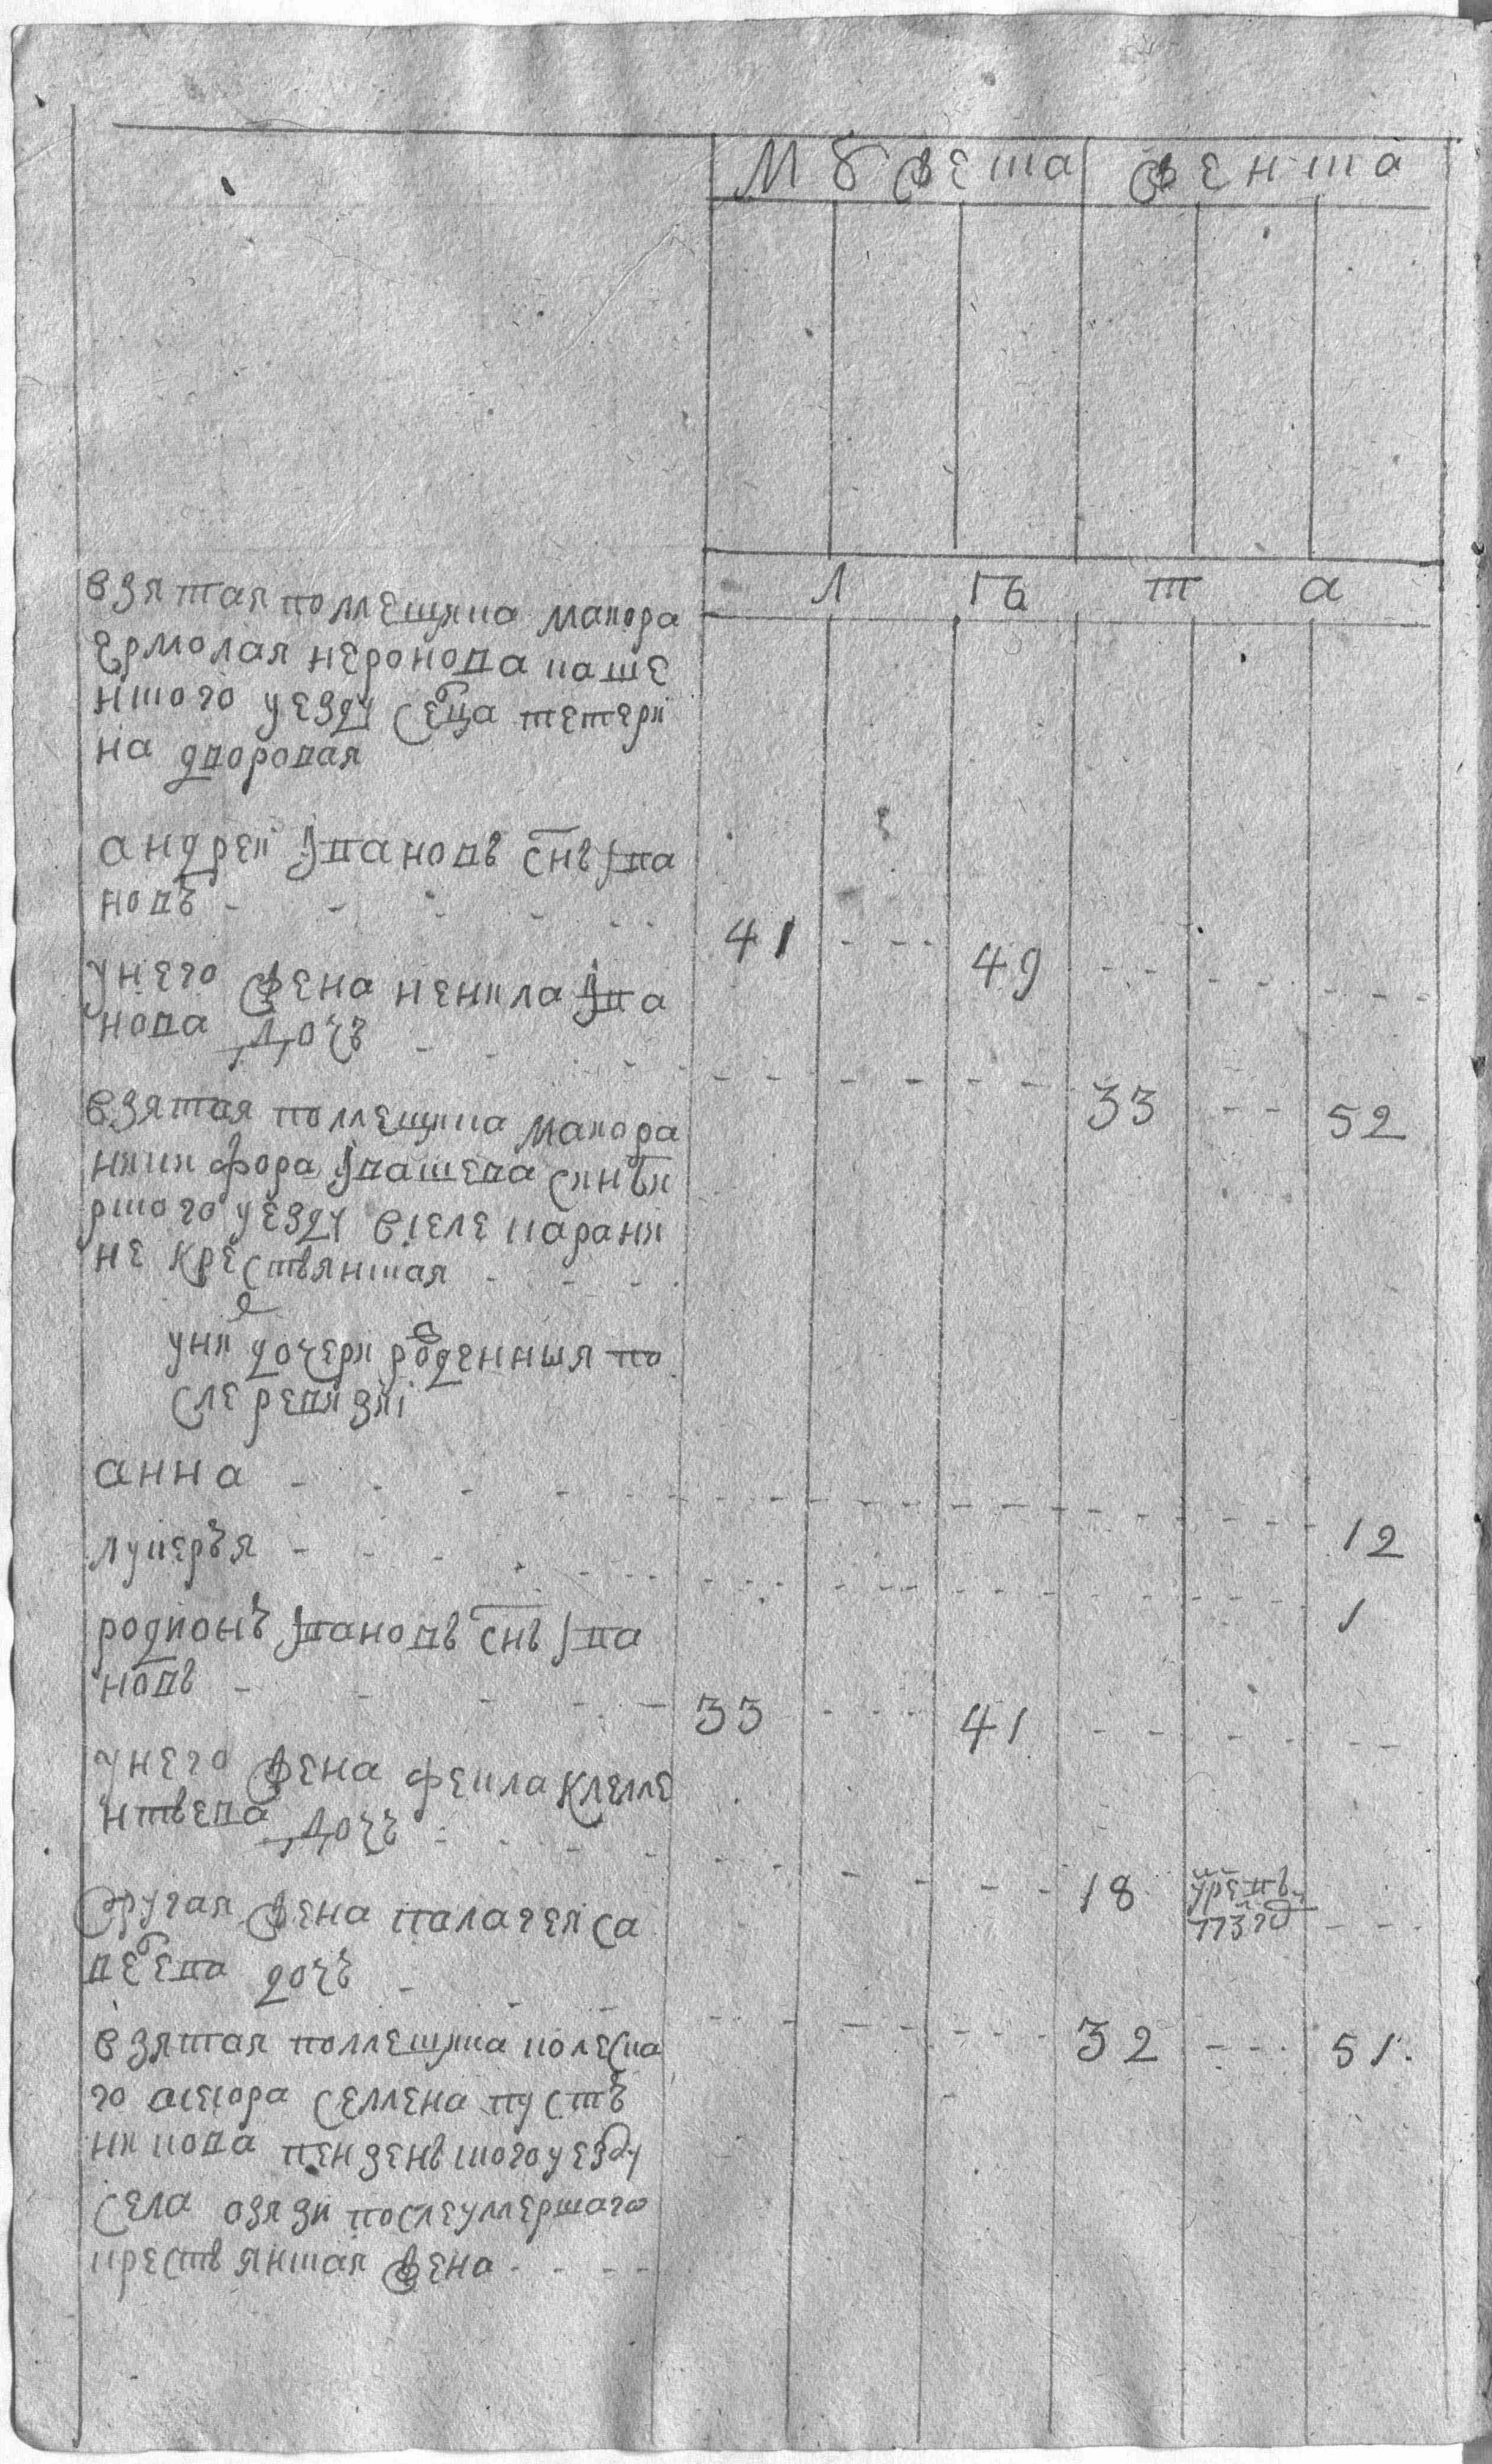 мужеска женска
л ѣ т а
взятая помещика маиора
ермолая неронова каше
нского уезду селца тетери
на дворовая
андреи Iвановъ снъ Iва
новъ 41 49
унего жена ненила Iва
нова дочь 33 52
взятая помещика маиора
никифора Iвашева синби
рского уезду в селе карани
не крестьянская
уние дочери рожденныя по
сле ревизиi
анна 12
лукерья 1
родионъ Iвановъ снъ Iва
новъ 33 41
унего жена фекла клеме
нтьева дочь 18 умре въ 773 год
другая жена палагея са
вельева дочь 32 51
взятая помещика колеска
го асесора семена пусты
никова пензенъского уезду
села вязи после умершаго
крестьянская жена